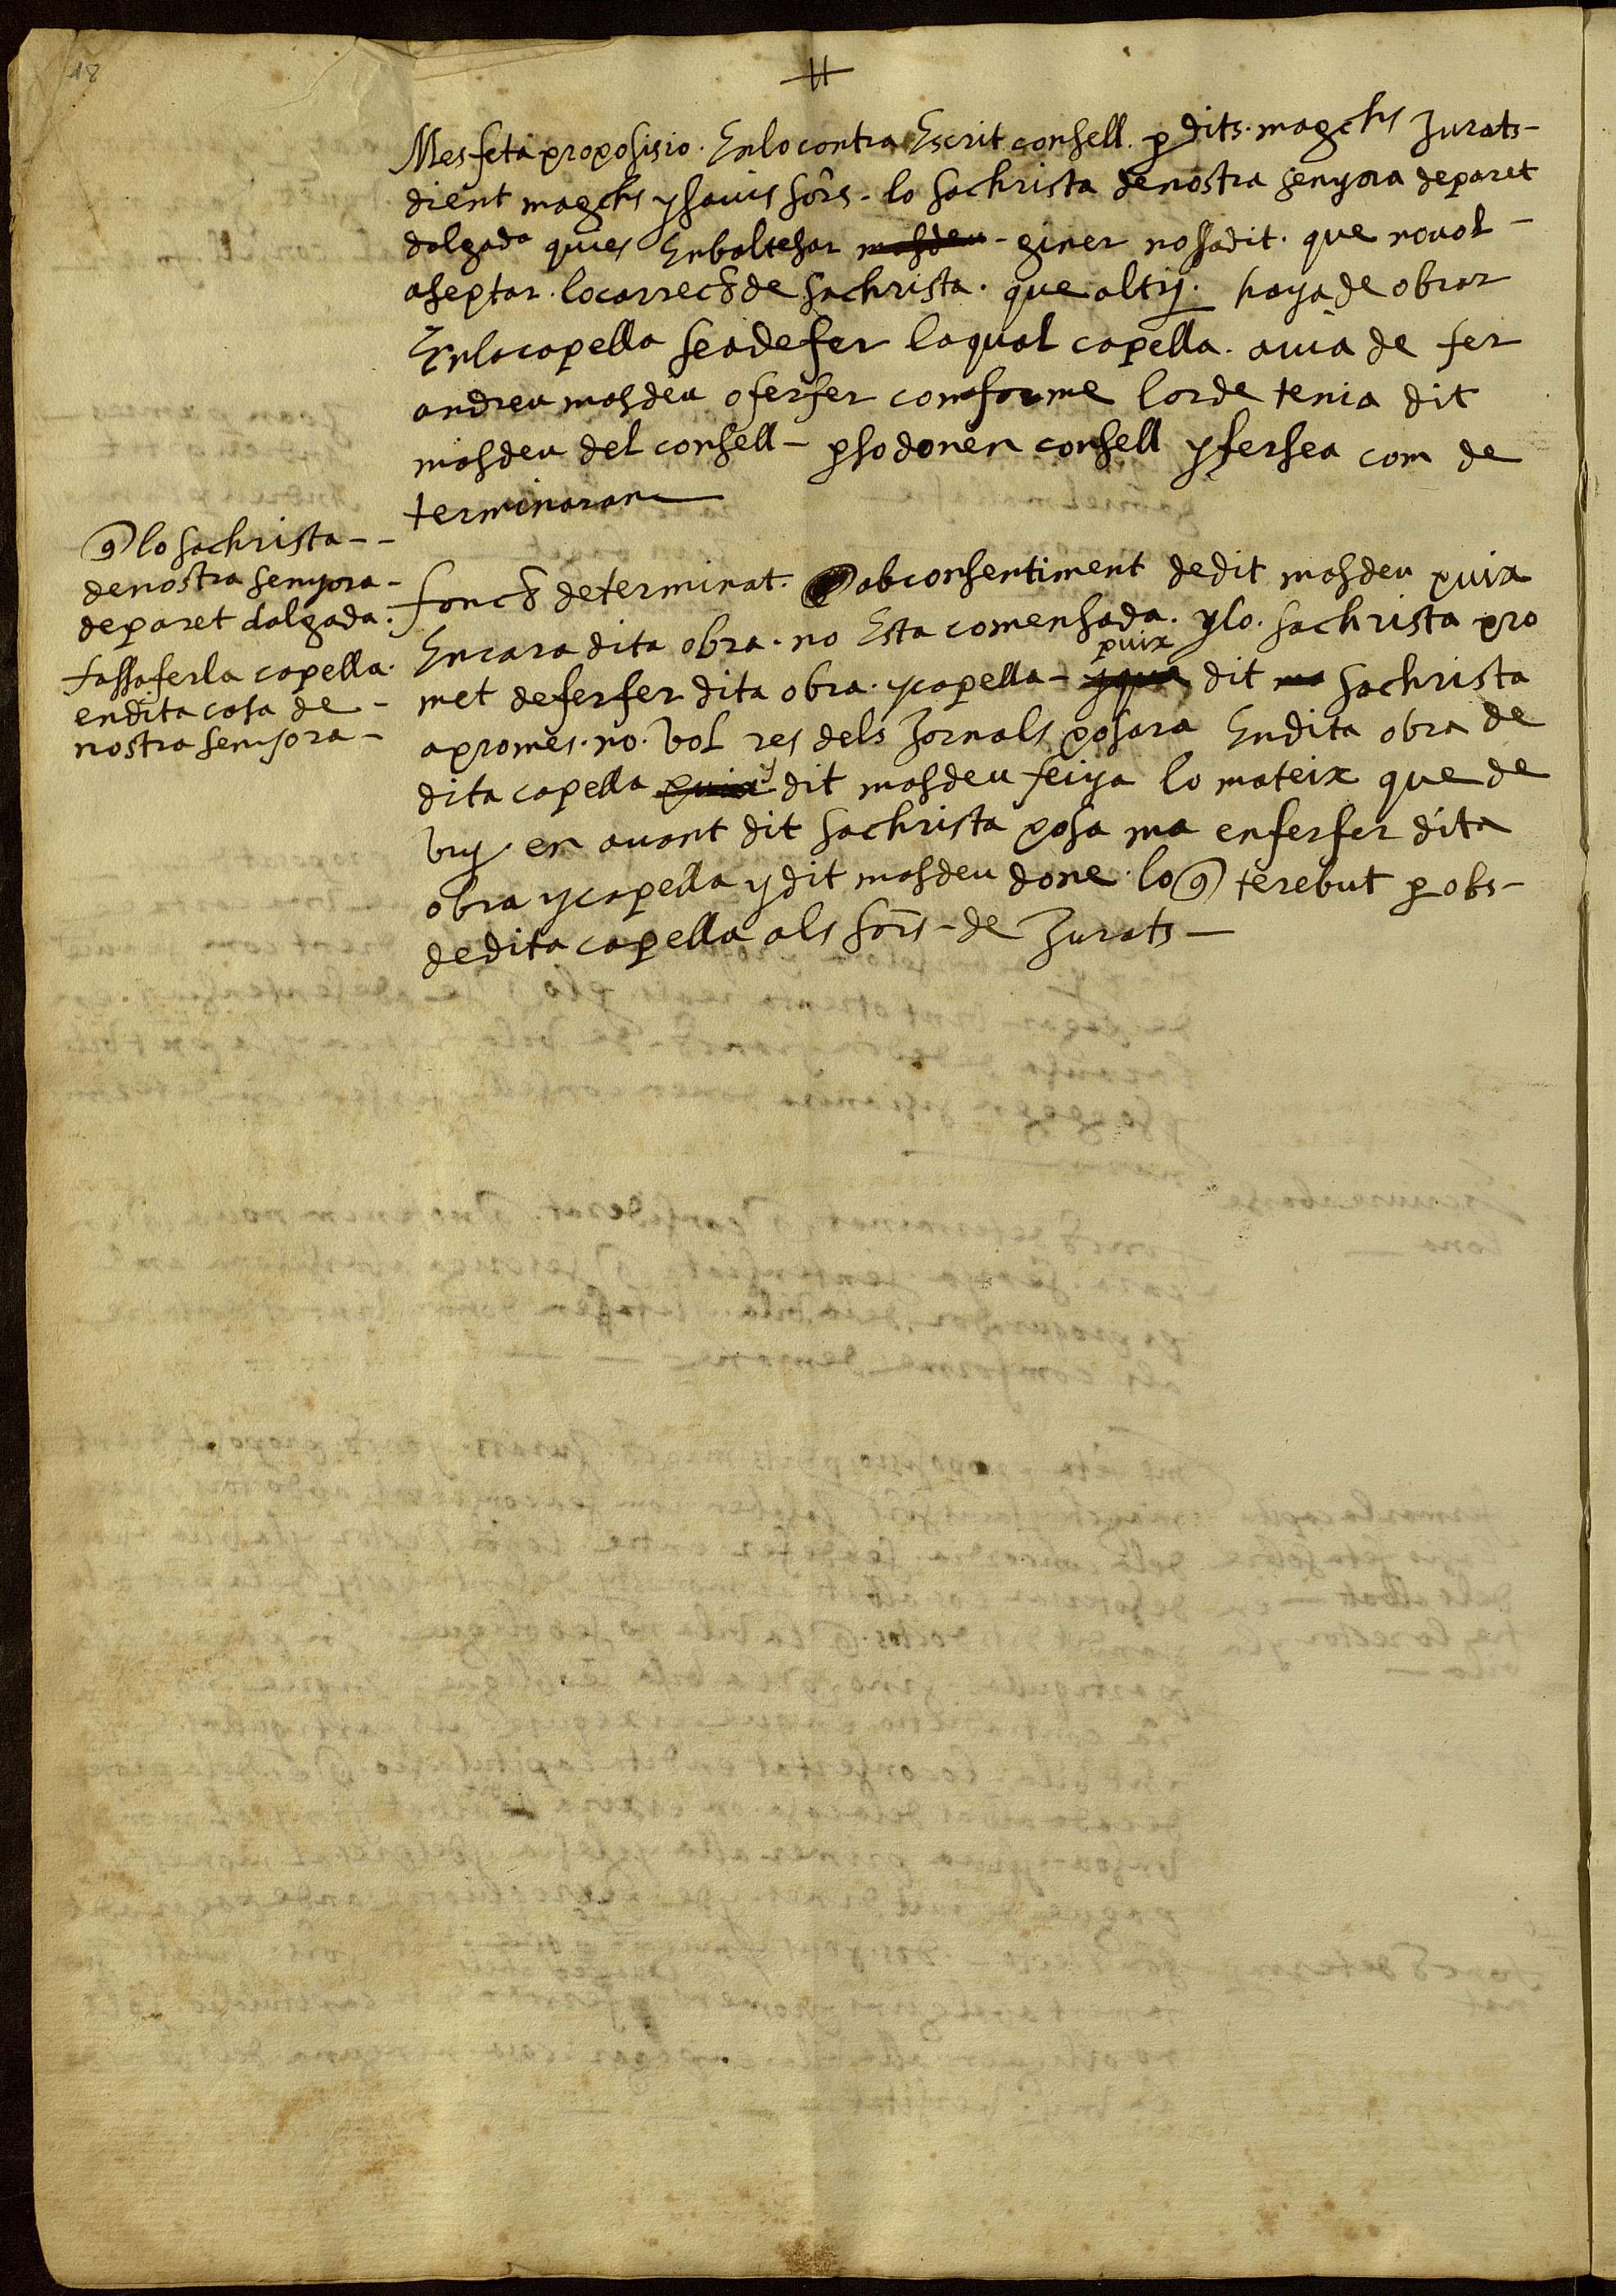 18
Mes feta proposisio. En lo contra Escrit consell. p dits. magchs Jurats-
dient magchs y sauis sors. lo sachrista de nostra senyora de paret
dalgada quies En baltesar masdeu - giner nos a dit. que no vol -
aseptar. lo carrech de sachrista. que altry. haya de obrar
En la capella sea de fer la qual capella. auia de fer
andreu masdeu o fer fer comforme lorde tenia dit
masdeu del consell - pso donen consell y fersea com de
terminaran
q lo sachrista - -
de nostra senyora -
de paret dalgada.
fassa fer la capella.
en dita casa de -
nostra senyora -
fonch determinat. q ab consentiment de dit masdeu puix
Encara dita obra. no Esta comensada. y lo. sachrista pro
met de fer fer dita obra. y capella - y que puix dit ma sachrista
a promes. no. vol res dels Jornals posara En dita obra de
dita capella puix y dit masdeu feiya lo mateix que de
vuy en auant dit sachrista posa ma en fer fer dita
obra y capella y dit masdeu done. lo q te rebut p obs -
de dita capella als sors - de Jurats -